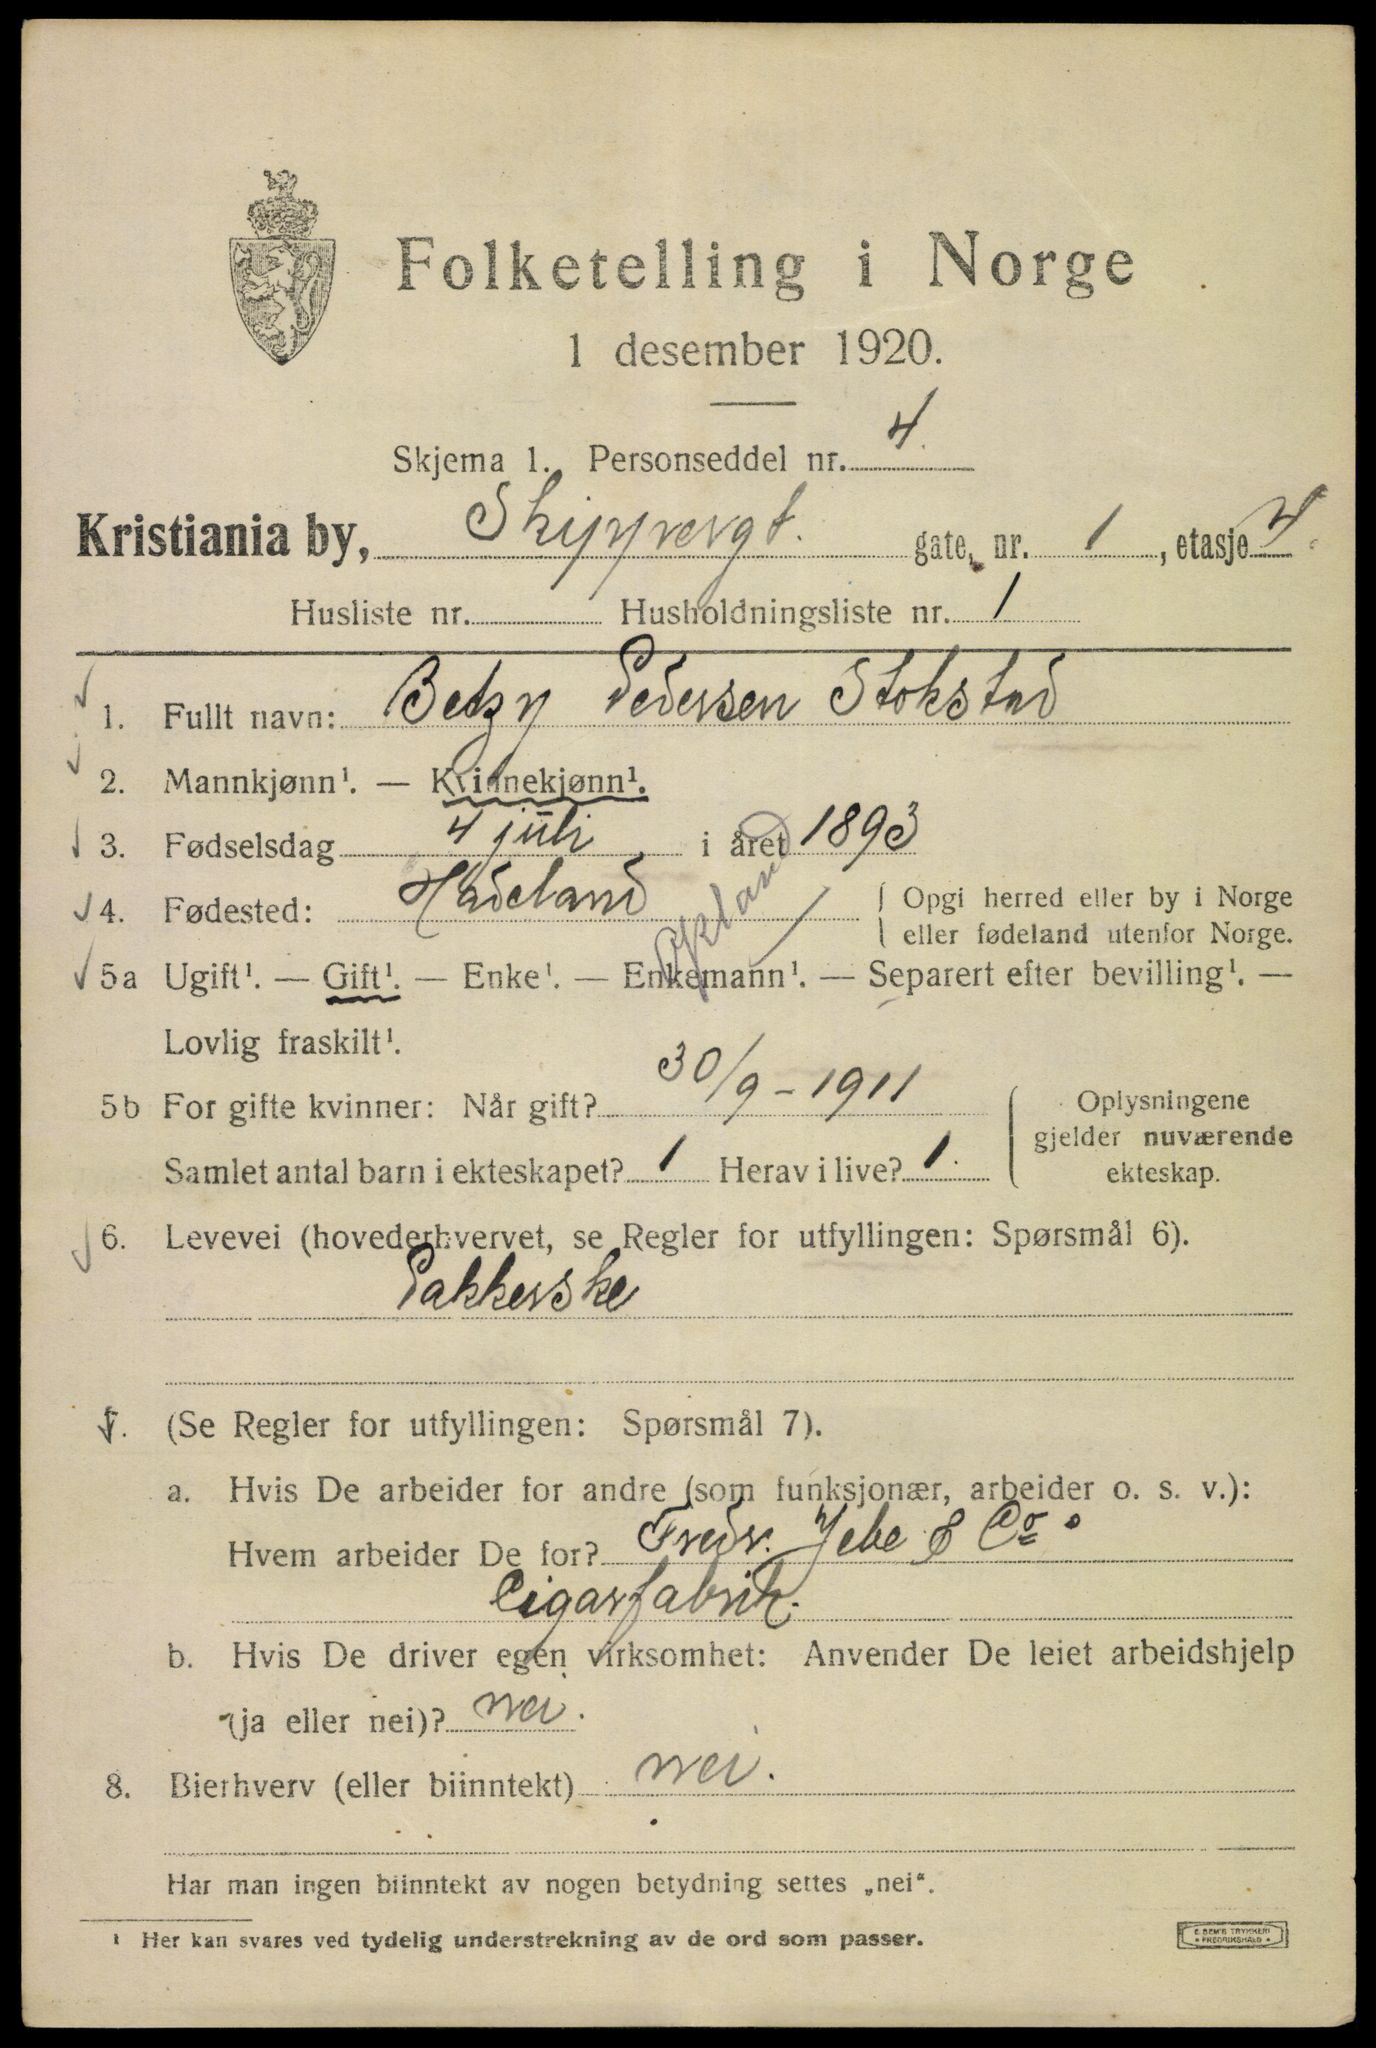 Folketelling i Norge
1 desember 1920.
Skjema 1. Personseddel nr. 4.
Kristiania by, Skippergt. gate, nr. 1, etasje 4.
Husliste nr. Husholdningsliste nr. 1
1. Fullt navn: Betzy Pedersen Stokstad
2. Mannkjønn¹. — Kvinnekjønn¹.
3. Fødselsdag 4 juli i året 1893
4. Fødested: Hadeland Opland Opgi herred eller by i Norge
eller fødeland utenfor Norge.
5a Ugift¹. — Gift¹. — Enke¹. — Enkemann¹. — Separert efter bevilling¹. —
Lovlig fraskilt¹.
5b For gifte kvinner: Når gift? 30/9 - 1911
Samlet antal barn i ekteskapet? 1 Herav i live? 1.
Oplysningene
gjelder nuværende
ekteskap.
6. Levevei (hovederhvervet, se Regler for utfyllingen: Spørsmål 6).
Pakkerske
7. (Se Regler for utfyllingen: Spørsmål 7).
a. Hvis De arbeider for andre (som funksjonær, arbeider o. s. v.):
Hvem arbeider De for? Fredr. Jebe & Co.
Cigarfabrik.
b. Hvis De driver egen virksomhet: Anvender De leiet arbeidshjelp
(ja eller nei)? nei.
8. Bierhverv (eller biinntekt) nei.
Har man ingen biinntekt av nogen betydning settes „nei“.
¹ Her kan svares ved tydelig understrekning av de ord som passer.
E. SEM'S TRYKKERI
• FREDRIKSHALD •